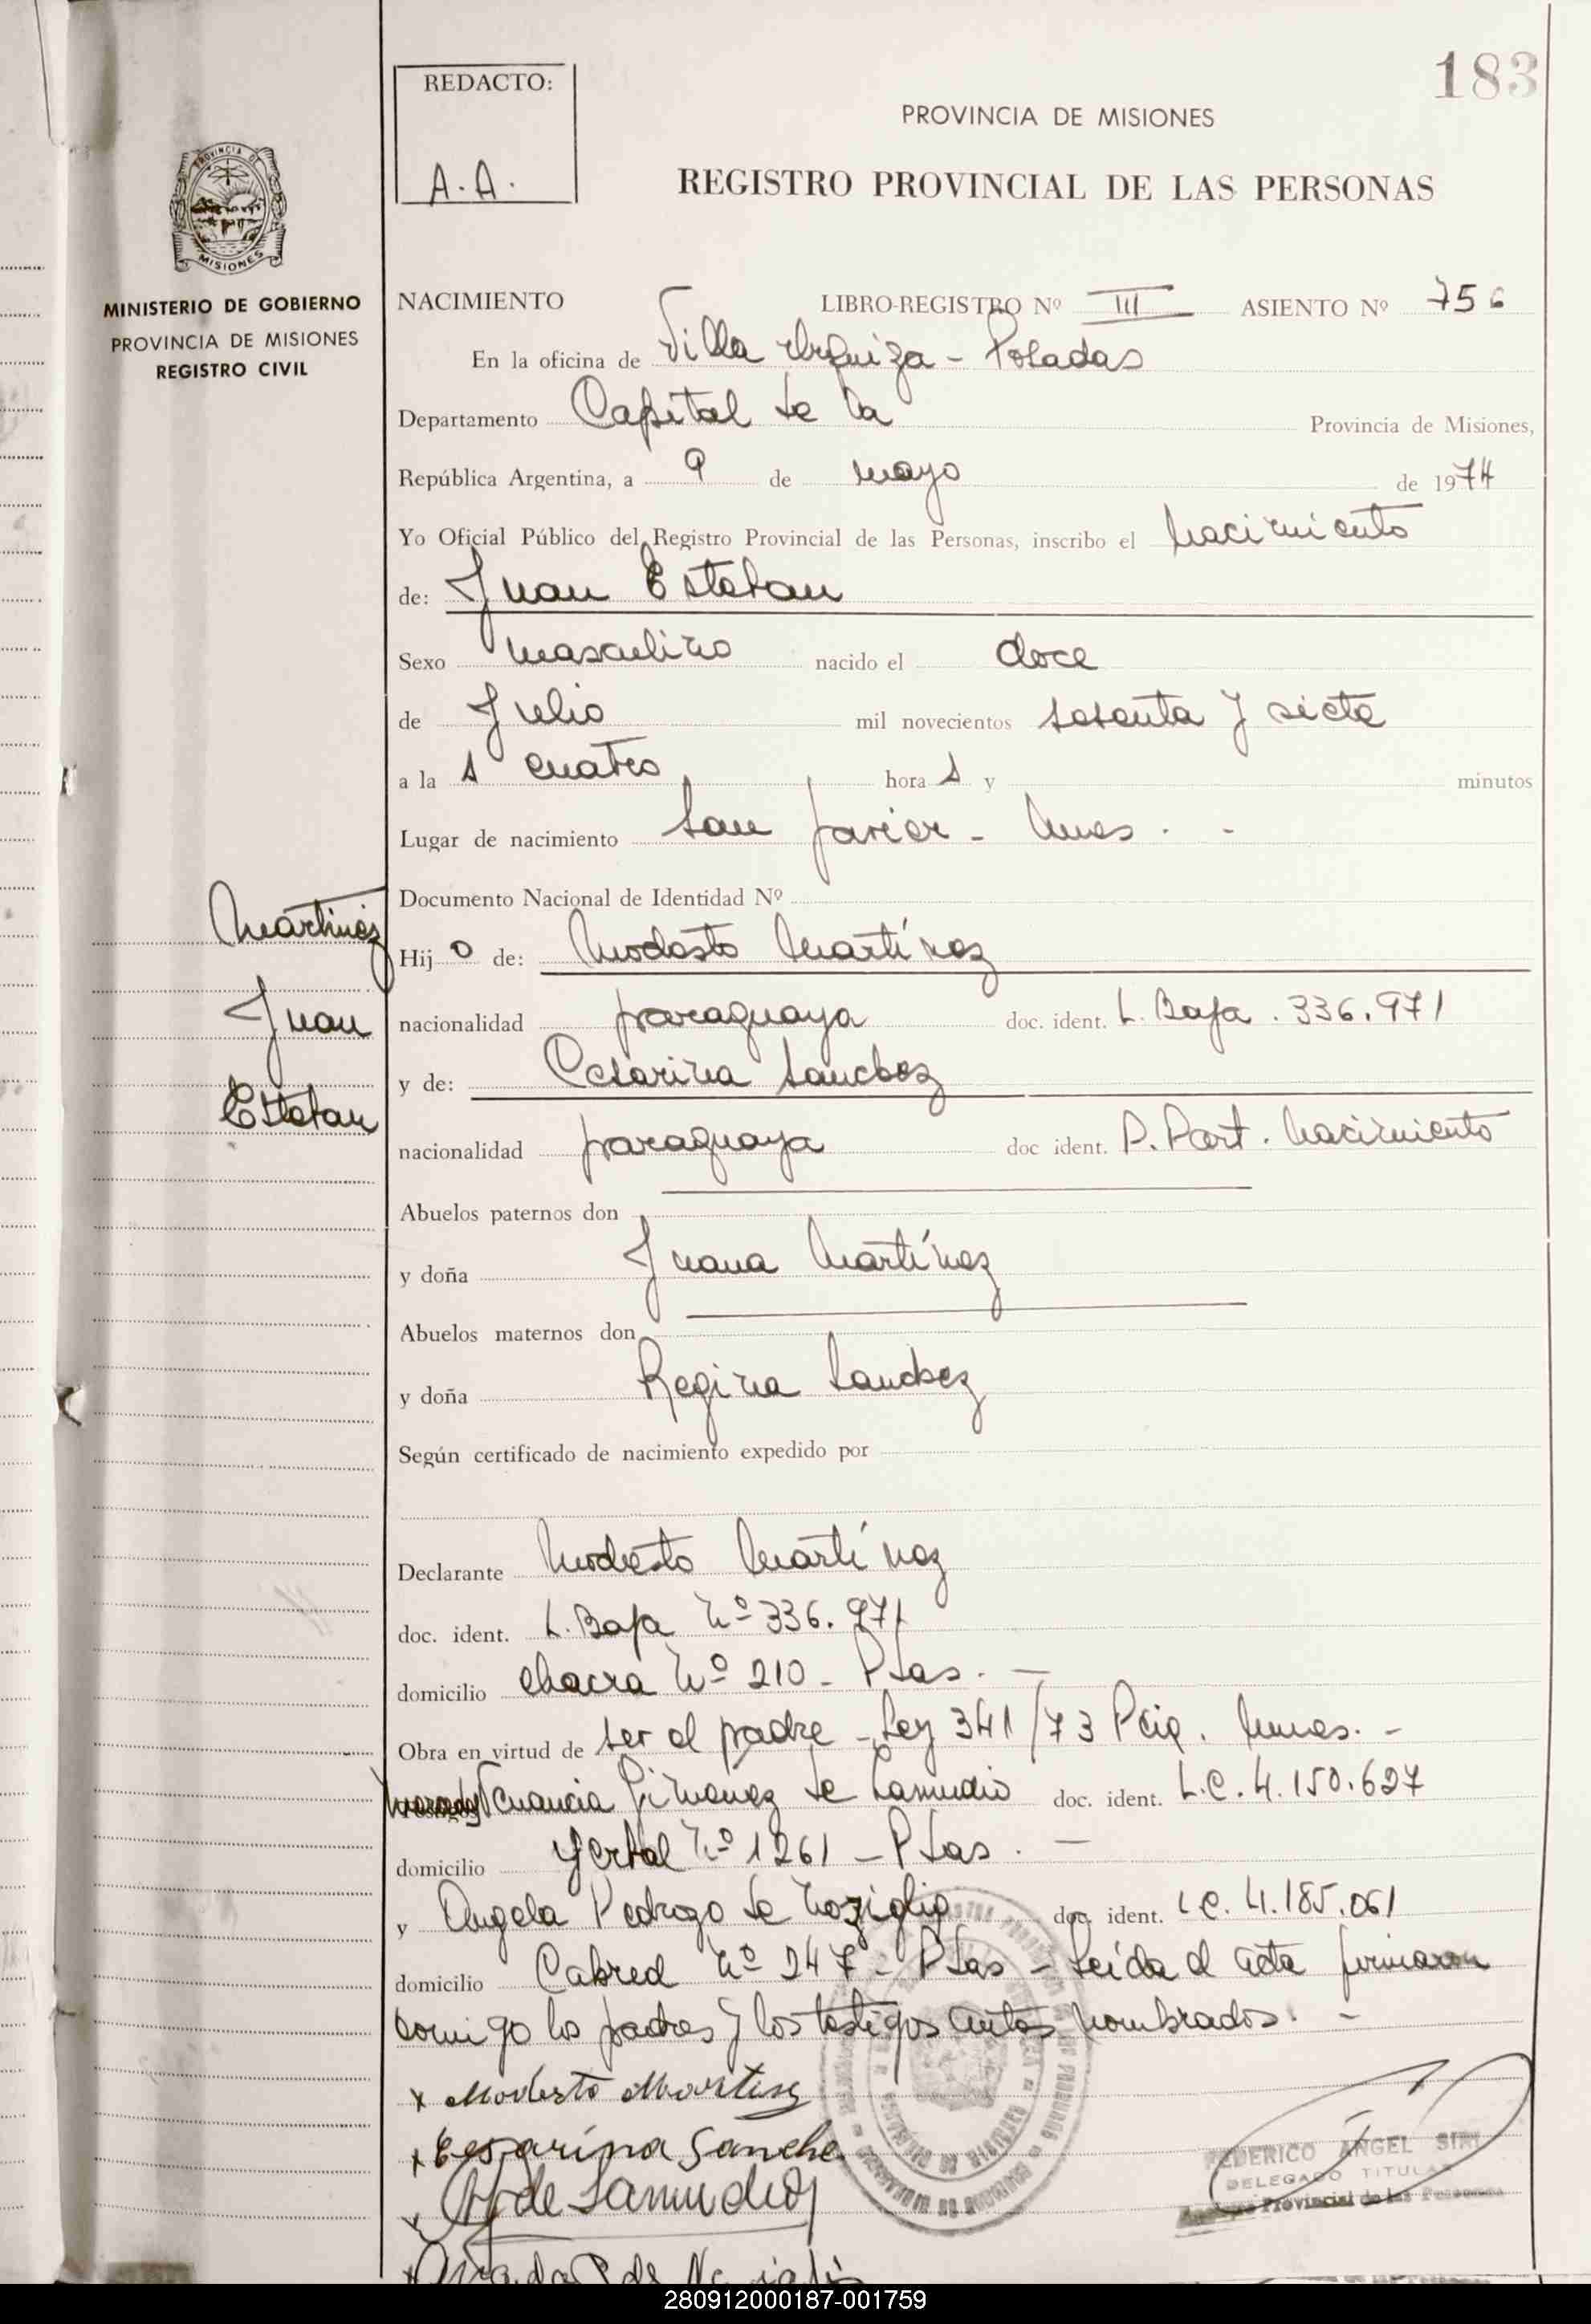 183
REDACTO:
A.A.
PROVINCIA DE MISIONES
REGISTRO PROVINCIAL DE LAS PERSONAS
PROVINCIA DE
MISIONES
MINISTERIO DE GOBIERNO
PROVINCIA DE MISIONES
REGISTRO CIVIL
NACIMIENTO LIBRO-REGISTRO Nº III ASIENTO Nº 756
En la oficina de Villa Urquiza - Posadas
Departamento Capital de la Provincia de Misiones,
República Argentina, a 9 de mayo de 1974
Yo Oficial Público del Registro Provincial de las Personas, inscribo el nacimiento
de: Juan Esteban
Sexo masculino nacido el doce
de Julio mil novecientos sesenta y siete
a la s cuatro hora s y minutos
Lugar de nacimiento San Javier - Mnes. -
Documento Nacional de Identidad Nº
Martinez
Juan
Esteban
Hij o de: Modesto Martínez
nacionalidad paraguaya doc. ident. L. Baja. 336.971
y de: Cesarina Sanchez
nacionalidad paraguaya doc ident. P. Part. Nacimiento
Abuelos paternos don
y doña Juana Martínez
Abuelos maternos don
y doña Regina Sanchez
Según certificado de nacimiento expedido por
Declarante Modesto Martínez
doc. ident. L. Baja Nº 336.971
domicilio Chacra Nº 210 - Pdas. -
Obra en virtud de ser el padre - Ley 341/73 Pcia. Mnes. -
Gimenez de Samudio doc. ident. L.C. 4.150.627
domicilio Yerbal Nº 1261 - Pdas. -
y Angela Pedrozo de doc. ident. L.C. 4.185.061
domicilio Cabred Nº 247 - Pdas - Leida el acta firmaron
comigo los padres y los testigos antes nombrados. -
x Modesto Martinez
x Cesarina Sanche
x de Samudio
FEDERICO ANGEL SIRI
DELEGADO TITULAR
Provincial de las Personas
280912000187-001759